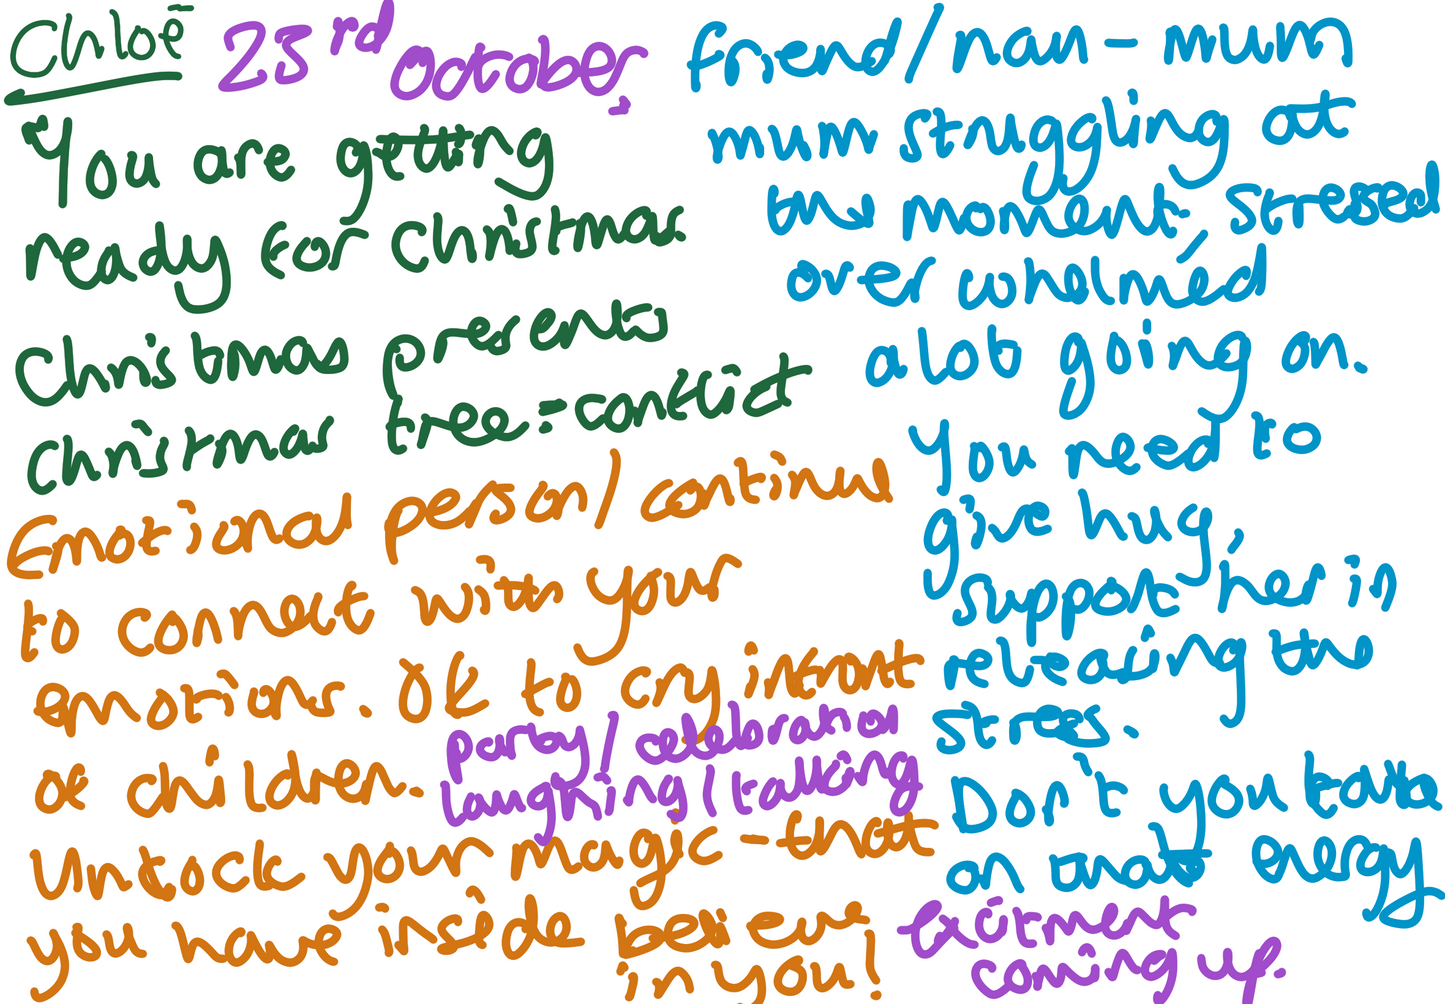 Chloē 23rd October,
You are getting
ready for Christmas
Christmas presents
Christmas tree = conflict
Emotional person/continue
to connect with your
emotions. OK to cry infront
of children.
party/celebration
laughing/talking
Unlock your magic - that
you have inside believe
in you!
friend/nan - mum
mum struggling at
the moment, stressed
over whelmed
a lot going on.
You need to
give hug,
support her in
releasing the
stress.
Don't you take
on that energy
excitment
coming up.